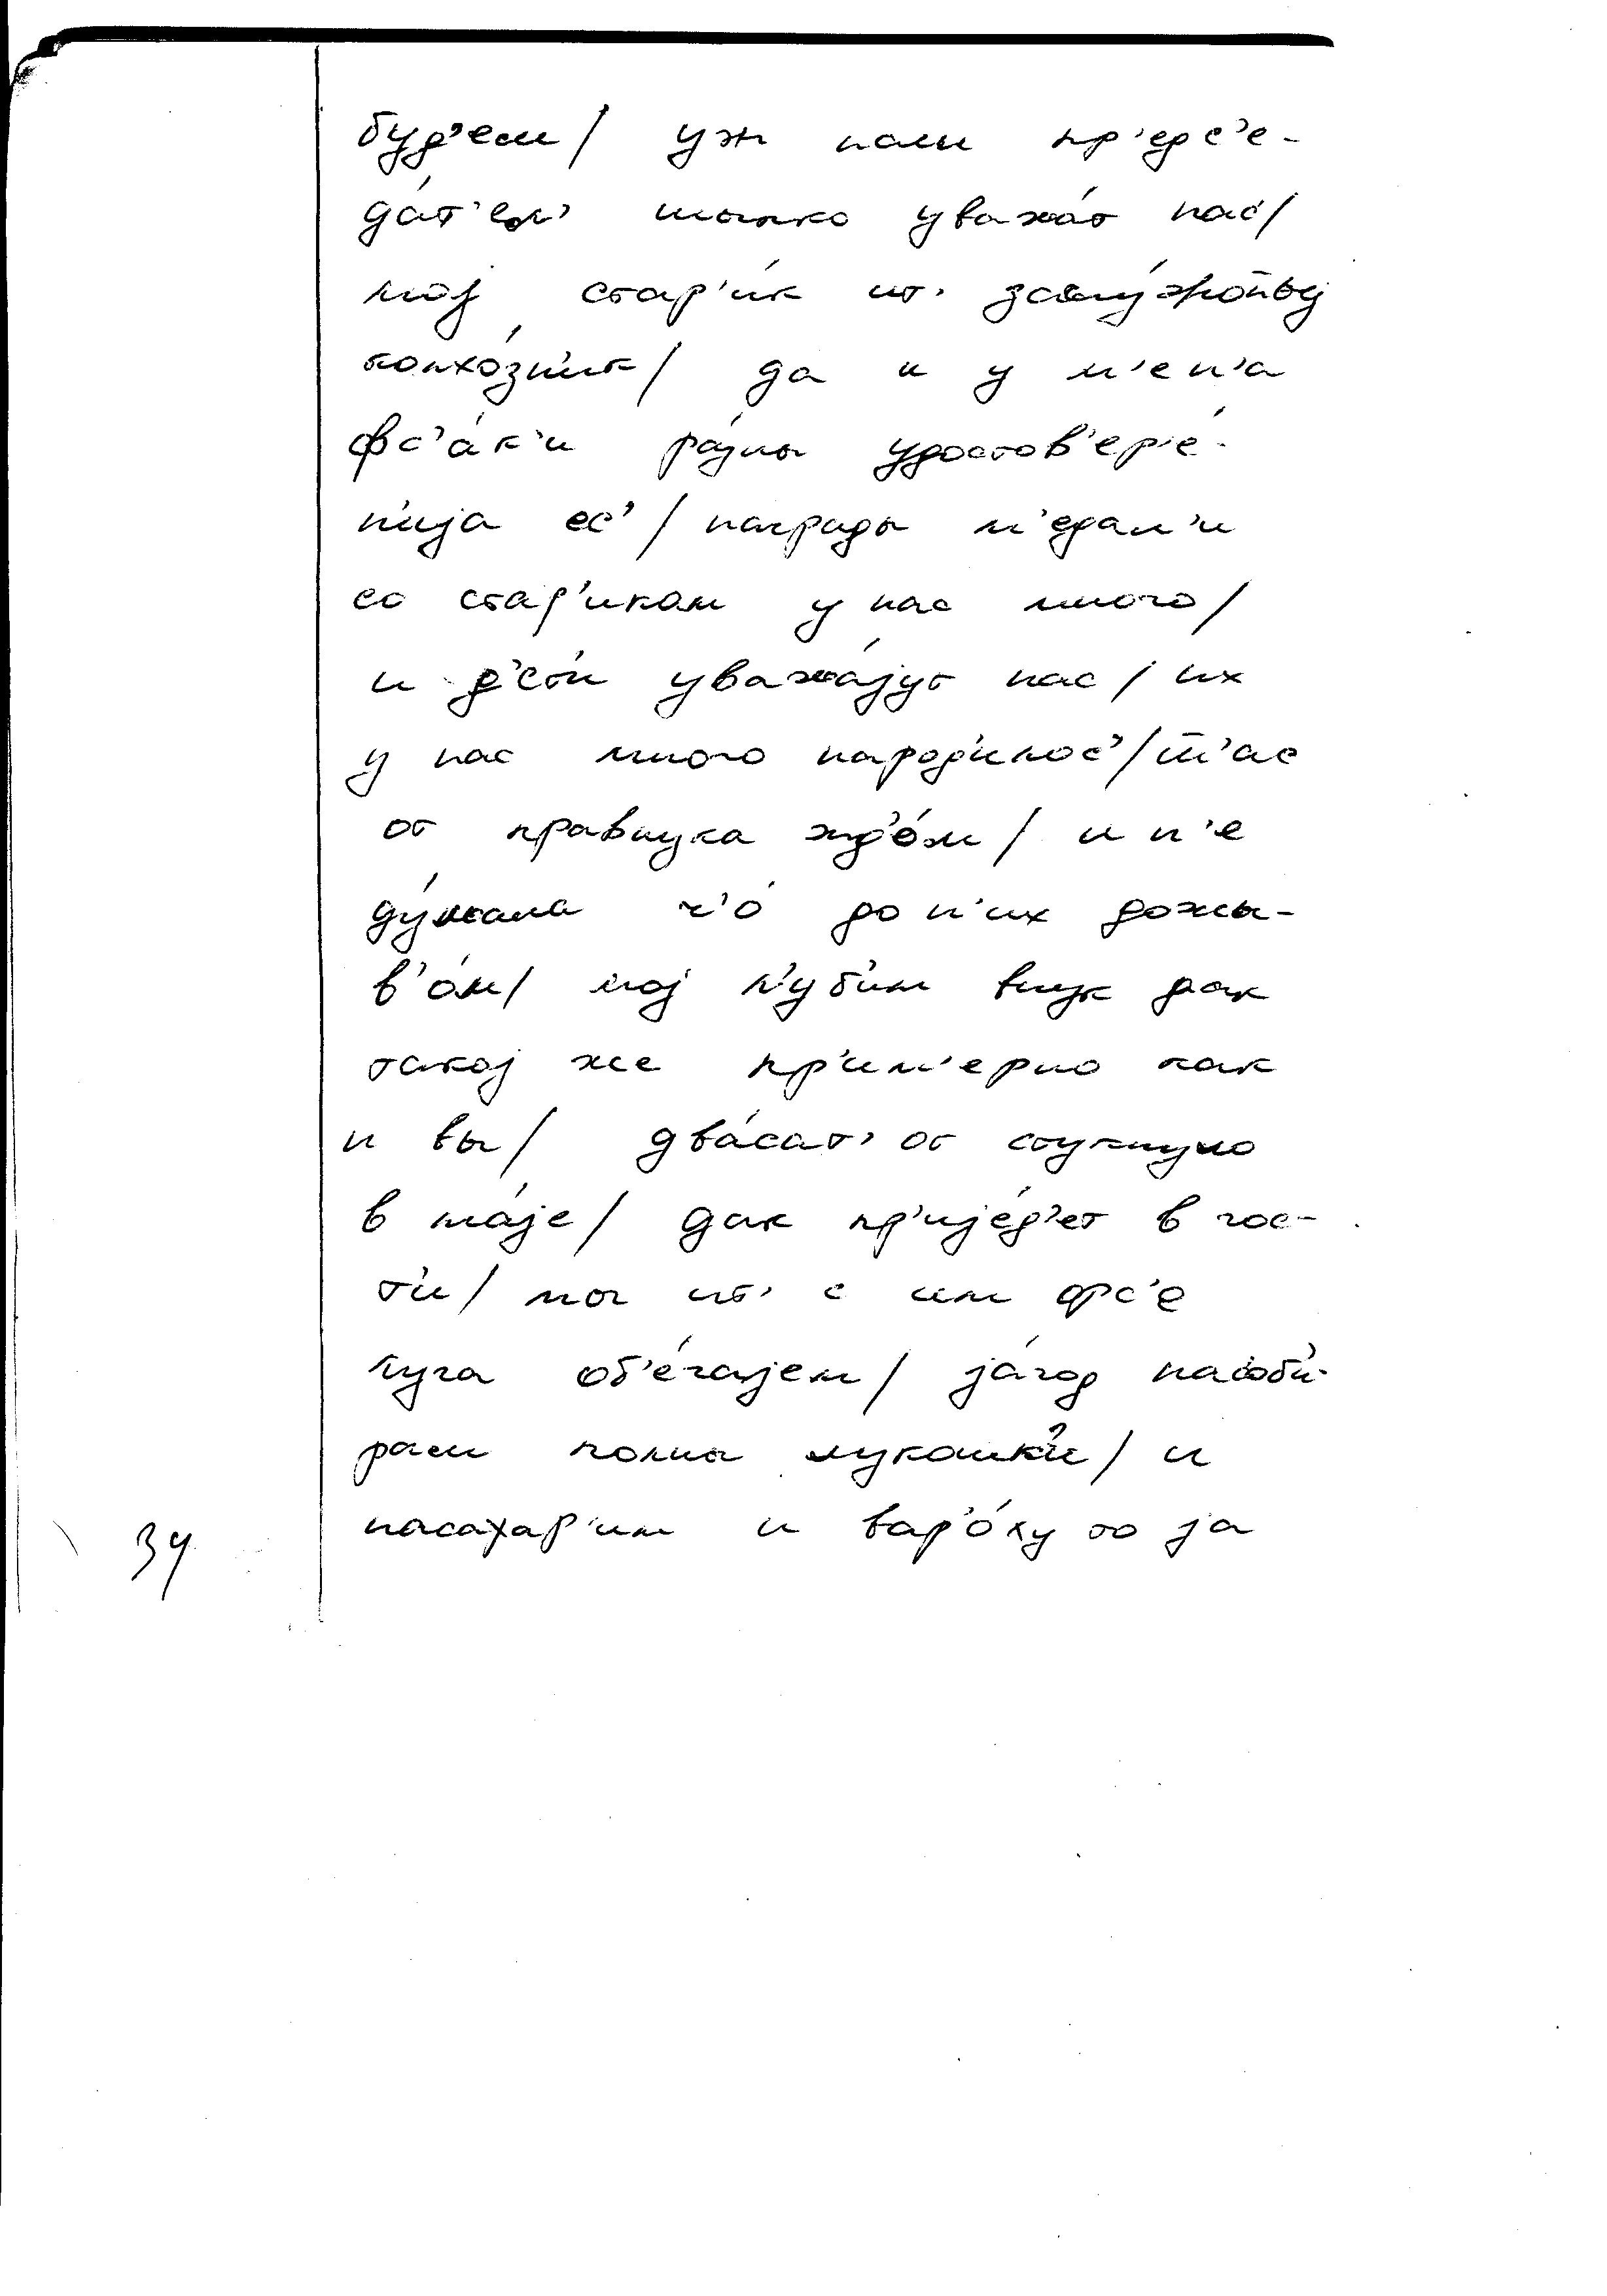 буд'ем / уж нам пр'едс'е-
да́т'ел' шыпко уважа́т нас /
мој стар'и́к ит' заслу́жоныј
колхо́з'н'ик / да и у м'ен'а
фс'а́к'и ра́зны удостов'ер'е́-
н'ија ес' / награды м'едал'и
со стар'иком у нас много /
и д'е́т'и уважа́јут нас / их
у нас много народ'илос' / ш'ас
от правнука жд'о́м / и н'е
ду́мала ч'о́ до н'их дожы-
в'о́м / мој л'убим внук дак
такој же пр'им'ерно как
и вы / два́сат' от стукнуло
в ма́је / дак пр'ије́д'ет в гос-
т'и / мы ит' с им фс'е
луга об'е́гајем / ја́год насоб'и-
рам полны лукошк'и / и
насахар'им и вар'о́ху то ја
34